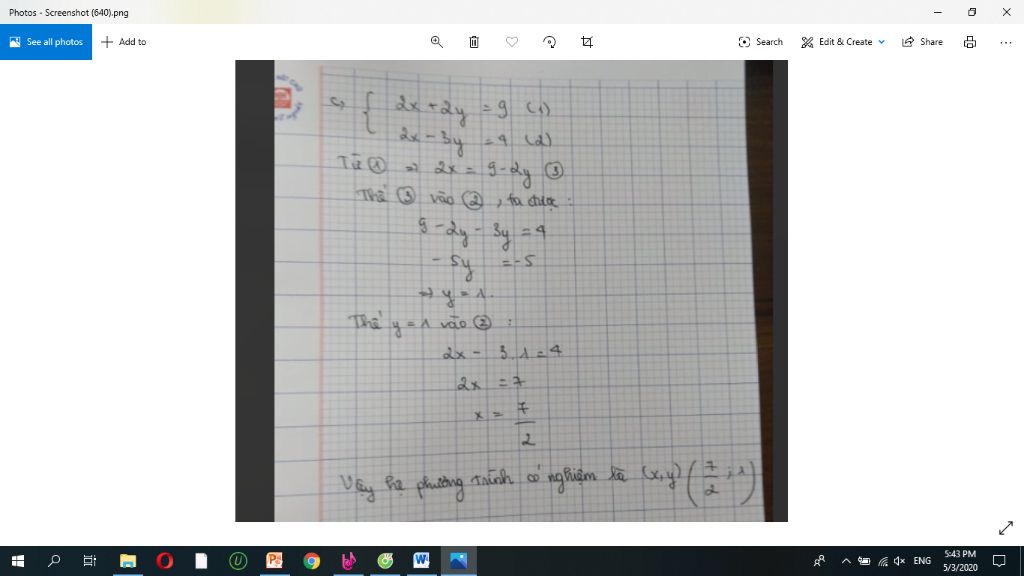 Photos - Screenshot (640).png
See all photos
Add to
Search
Edit & Create
Share
c, { 2x + 2y = 9 (1)
2x - 3y = 4 (2)
Từ ① ⇒ 2x = 9 - 2y ③
Thế ③ vào ②, ta được :
9 - 2y - 3y = 4
- 5y = - 5
⇒ y = 1.
Thế y = 1 vào ② :
2x - 3.1 = 4
2x = 7
x = 7/2
Vậy hệ phương trình có nghiệm là (x,y) (7/2 ; 1)
ENG
5:43 PM
5/3/2020